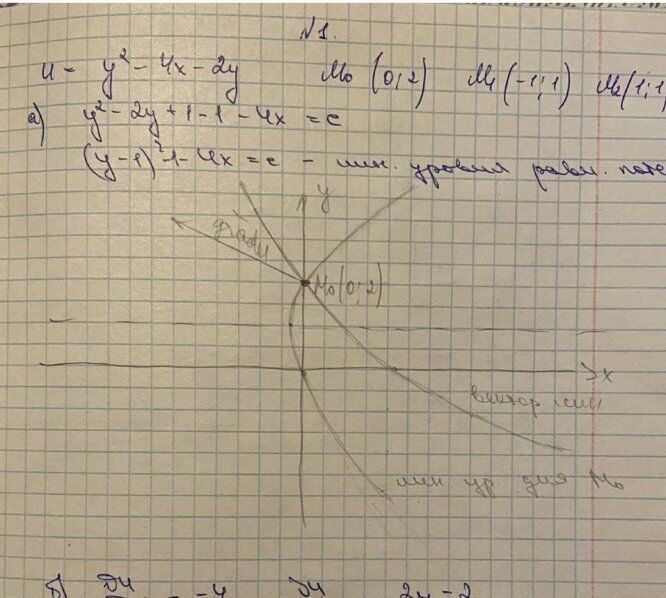 №1.
u = y² - 4x - 2y   M₀ (0; 2)   M₁ (-1; 1)   M₂ (1; 1
а) y² - 2y + 1 - 1 - 4x = c
(y - 1)² - 1 - 4x = c - лин. уровня равн. поте
y
gradu
M₀ (0; 2)
x
вектор лин
лин ур. для M₀
б) ∂u = -4   ∂u   2y - 2